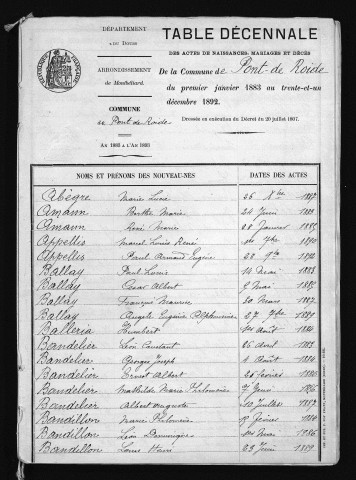 DÉPARTEMENT
DU DOUBS
ARRONDISSEMENT
de Montbéliard.
COMMUNE
de Pont de Roide
AN 1883 A L'AN 1893
TABLE DÉCENNALE
DES ACTES DE NAISSANCES, MARIAGES ET DÉCÈS
De la Commune de Pont-de Roide
du premier janvier 1883 au trente-et-un
décembre 1892.
Dressée en exécution du Décret du 20 juillet 1807.
NOMS ET PRÉNOMS DES NOUVEAU-NÉS DATES DES ACTES
Abègre Marie 26
Amann Berthe Marie 24 Juin 1889
Amann René Marie 28 Janvier 1885
Appellis Marcel Louis René 1890
Appellis Paul Armand Eugène 28 1892
Ballay Paul Louis 14 Mai 1883
Ballay Oscar Albert 9 Mai 1885
Ballay François Maurice 30 Mars 1887
Ballay Angèle Eugénie 27 1889
Balleria Humbert 1er Août 1884
Bandelier Léon Constant 25 avril 1883
Bandelier Georges Joseph 4 Août 1884
Bandelier Ernest Albert 26 février 1886
Bandelier Mathilde Marie Philomène 7
Bandelier Albert Auguste 10 Juillet 1887
Bandillon Marie Philomène 8 Février
Bandillon Léon Dominique 1er Mai 1886
Bandillon Louis 23 Juin 1889